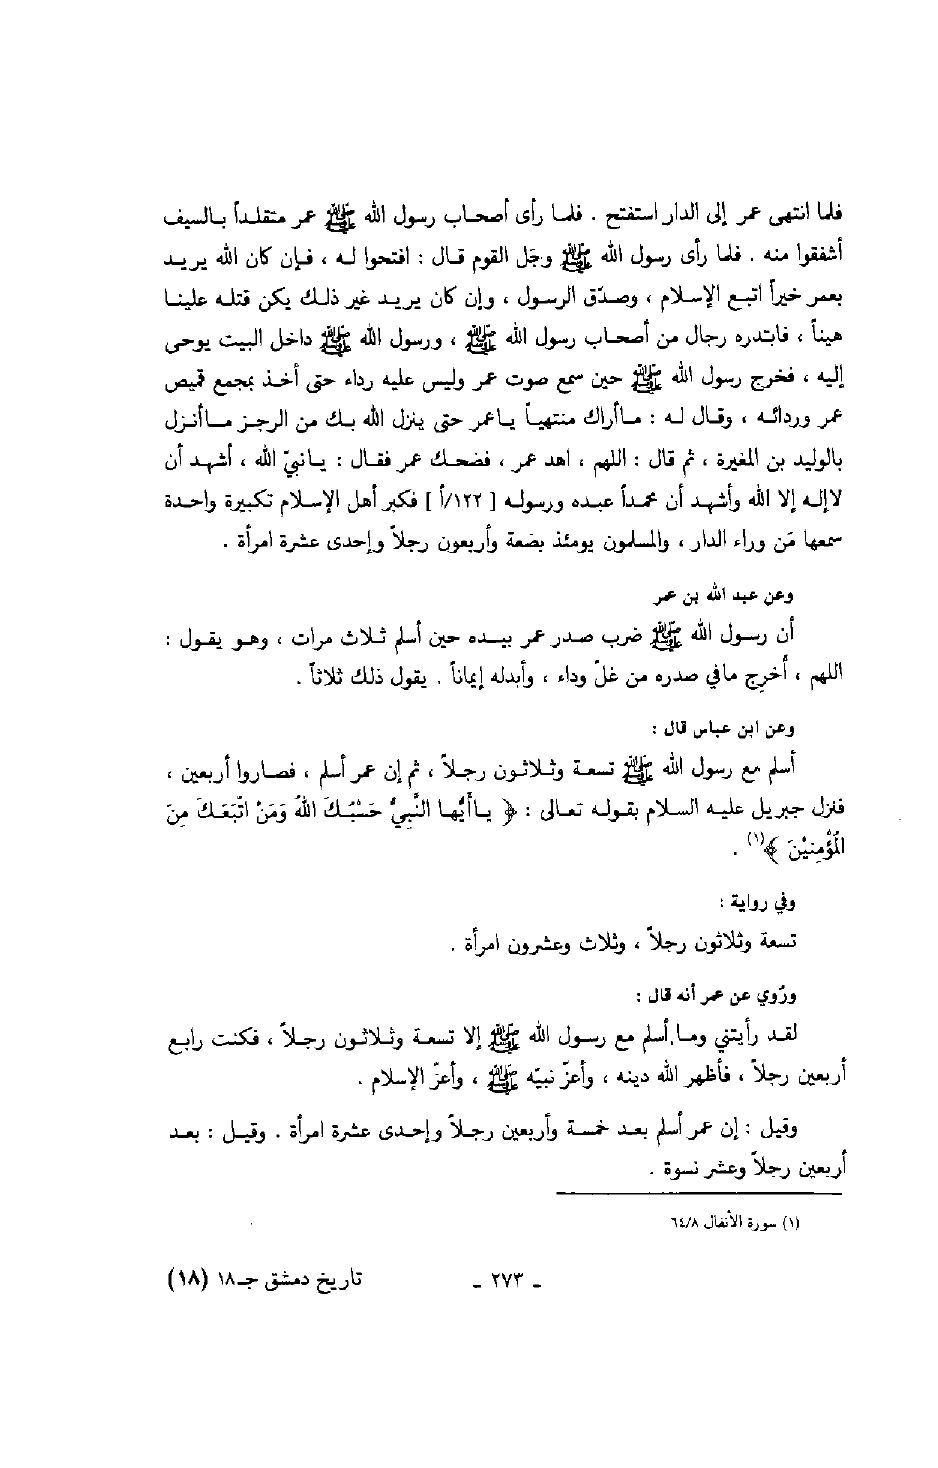 فلما انتهى عمر إلى الدار استفتح . فلما رأى أصحاب رسول الله ﷺ عمر متقلداً بالسيف
أشفقوا منه . فلما رأى رسول الله ﷺ وجَل القوم قال : افتحوا له ، فإن كان الله يريد
بعمر خيراً اتبع الإسلام ، وصدّق الرسول ، وإن كان يريد غير ذلك يكن قتله علينا
هيناً ، فابتدره رجال من أصحاب رسول الله ﷺ ، ورسول الله ﷺ داخل البيت يوحى
إليه ، فخرج رسول الله ﷺ حين سمع صوت عمر وليس عليه رداء حتى أخذ بمجمع قميص
عمر وردائه ، وقال له : ماأراك منتهياً ياعمر حتى ينزل الله بك من الرجز ماأنزل
بالوليد بن المغيرة ، ثم قال : اللهم ، اهد عمر ، فضحك عمر فقال : يانبيّ الله ، أشهد أن
لاإله إلا الله وأشهد أن محمداً عبده ورسوله [ ١٢٢/أ ] فكبر أهل الإسلام تكبيرة واحدة
سمعها مَن وراء الدار ، والمسلمون يومئذ بضعة وأربعون رجلاً وإحدى عشرة امرأة .
وعن عبد الله بن عمر
أن رسول الله ﷺ ضرب صدر عمر بيده حين أسلم ثلاث مرات ، وهو يقول :
اللهم ، أَخرِج مافي صدره من غلّ وداء ، وأبدله إيماناً . يقول ذلك ثلاثاً .
وعن ابن عباس قال :
أسلم مع رسول الله ﷺ تسعة وثلاثون رجلاً ، ثم إن عمر أسلم ، فصاروا أربعين ،
فنزل جبريل عليه السلام بقوله تعالى : ﴿ يَاأَيُّها النَّبِيُّ حَسْبُكَ اللهُ وَمَنْ اتَّبَعَكَ مِنَ
المُؤْمِنِيْنَ ﴾(١) .
وفي رواية :
تسعة وثلاثون رجلاً ، وثلاث وعشرون امرأة .
ورُوي عن عمر أنه قال :
لقد رأيتني وما أسلم مع رسول الله ﷺ إلا تسعة وثلاثون رجلاً ، فكنت رابع
أربعين رجلاً ، فأظهر الله دينه ، وأعزّ نبيّه ﷺ ، وأعزّ الإسلام .
وقيل : إن عمر أسلم بعد خمسة وأربعين رجلاً وإحدى عشرة امرأة . وقيل : بعد
أربعين رجلاً وعشر نسوة .
(١) سورة الأنفال ٦٤/٨
ـ ٢٧٣ ـ تاريخ دمشق جـ١٨ (١٨)